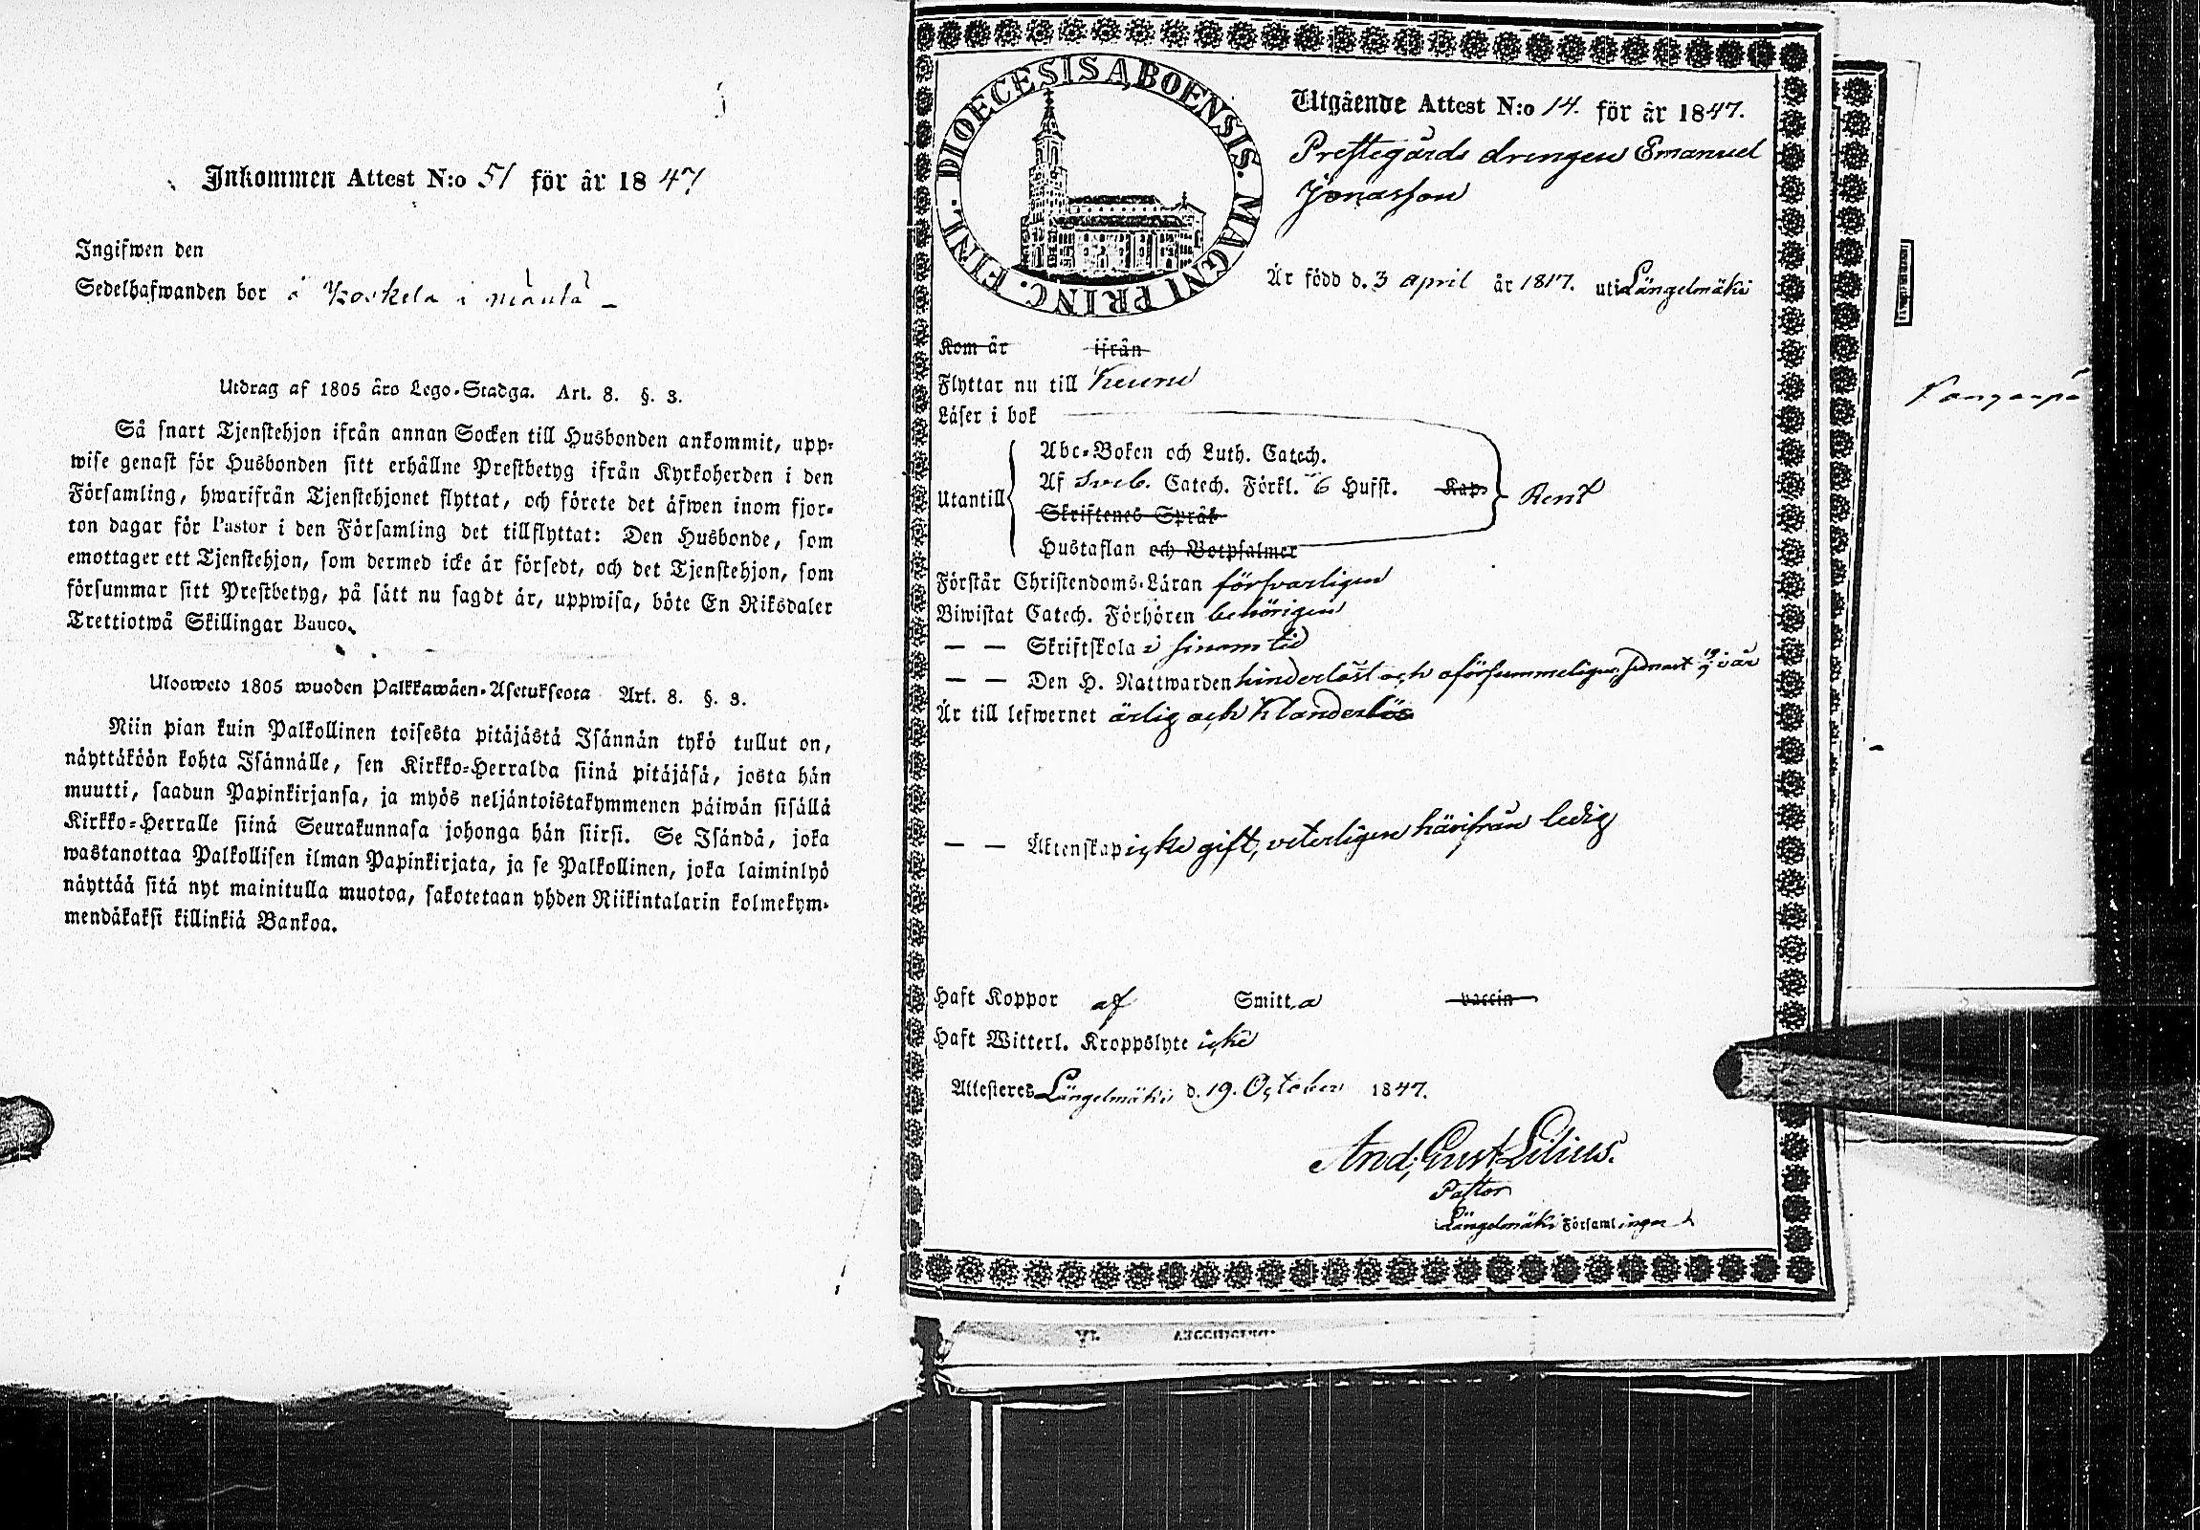 Inkommen Attest N:o 51 för år 1847
Ingifwen den
Sedelhafwanden bor å Koskela i Mänttä –
Utdrag af 1805 åro Lego-Stadga. Art. 8. §. 3.
Så snart Tjenstehjon ifrån annan Socken till Husbonden ankommit, upp-
wise genast för Husbonden sitt erhållne Prestbetyg ifrån Kyrkoherden i den
Församling, hwarifrån Tjenstehjonet flyttat, och förete det äfwen inom fjor-
ton dagar för Pastor i den Församling det tillflyttat: Den Husbonde, som
emottager ett Tjenstehjon, som dermed icke är försedt, och det Tjenstehjon, som
försummar sitt Prestbetyg, på sätt nu sagdt är, uppwisa, böte En Riksdaler
Trettiotwå Skillingar Banco.
Ulosweto 1805 wuoden Palkkawäen-Asetuksesta Art. 8. §. 3.
Niin pian kuin Palkollinen toisesta pitäjästä Isännän tykö tullut on,
näyttäköön kohta Isännälle, sen Kirkko-Herralda siinä pitäjäsä, josta hän
muutti, saadun Papinkirjansa, ja myös neljäntoistakymmenen päiwän sisällä
Kirkko-Herralle siinä Seurakunnasa johonga hän siirsi. Se Isändä, joka
wastanottaa Palkollisen ilman Papinkirjata, ja se Palkollinen, joka laiminlyö
näyttää sitä nyt mainitulla muotoa, sakotetaan yhden Riikintalarin kolmekym-
mendäkaksi killinkiä Bankoa.
DIOECESIS ABOENSIS. MAGNI PRINC. FINL.
Utgående Attest N:o 14. för år 1847.
Prestegårds drengen Emanuel
Jonasson
Är född d. 3 april år 1817. uti Längelmäki
Kom år ifrån
Flyttar nu till Keuru
Läser i bok
Abc-Boken och Luth. Catech.
Utantill Af Sveb. Catech. Förkl. 6 Hufst. Kap. Rent
Skriftenes Språk
Hustaflan och Botpsalmer
Förstår Christendoms-Läran försvarligen
Biwistat Catech. Förhören behörigen
— — Skriftskola i sinom tid
— — Den H. Nattwarden hinderlöst och oförsummeligen, sednast 19/9 i år
Är till lefwernet ärlig och klanderlös
— — Äktenskap icke gift, veterligen härifrån ledig
Haft Koppor af Smitta vaccin
Haft Witterl. Kroppslyte icke
Attesteres Längelmäki d. 19. October 1847.
And. Gust. Lilius.
Pastor
Längelmäki Församlingar
Kangaspä